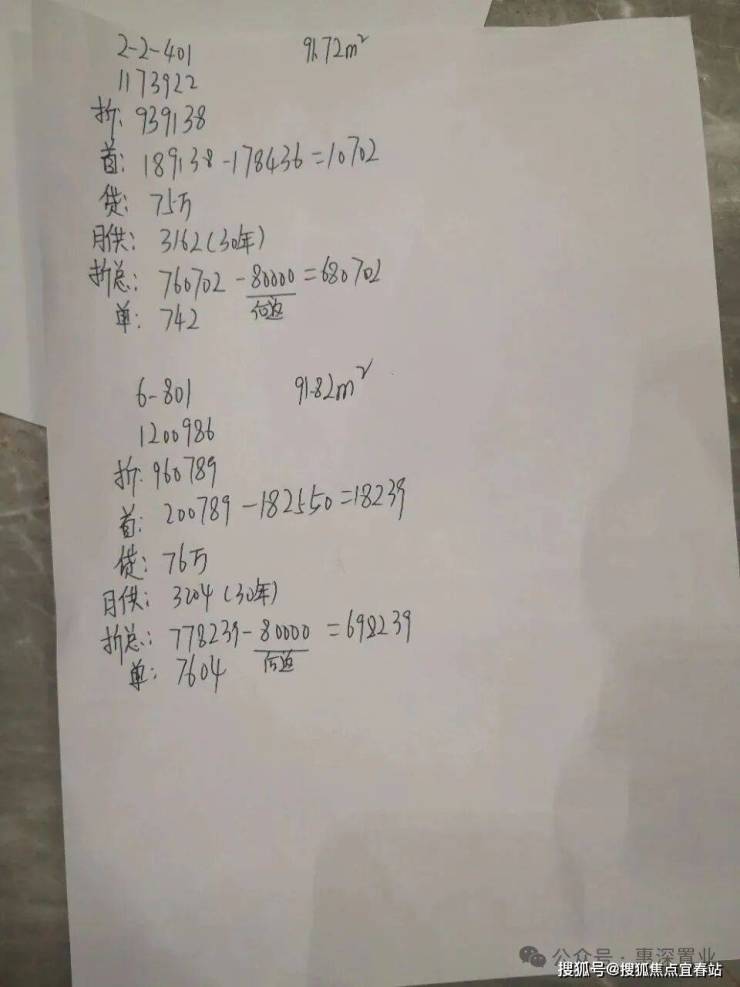 2-2-401 91.72m²
1173922
折: 939138
首: 189138-178436=10702
贷: 75万
月供: 3162(30年)
折总: 760702-80000=680702
后返
单: 742
6-801 91.82m²
1200986
折: 960789
首: 200789-182550=18239
贷: 76万
月供: 3204(30年)
折总: 778239-80000=698239
后返
单: 7604
公众号·惠深置业
搜狐号@搜狐焦点宜春站